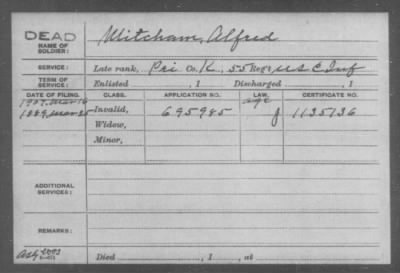 DEAD
NAME OF SOLDIER:
Mitcham, Alfred
SERVICE:
Late rank, Pri Co. K, 55 Reg't U S C Inf
TERM OF SERVICE:
Enlisted , 1 Discharged , 1
DATE OF FILING. CLASS. APPLICATION NO. LAW. CERTIFICATE NO.
1907, Mar 16 age
1889, Mar Invalid, 695985 J 1135136
Widow,
Minor,
ADDITIONAL SERVICES:
REMARKS:
Died , 1 , at